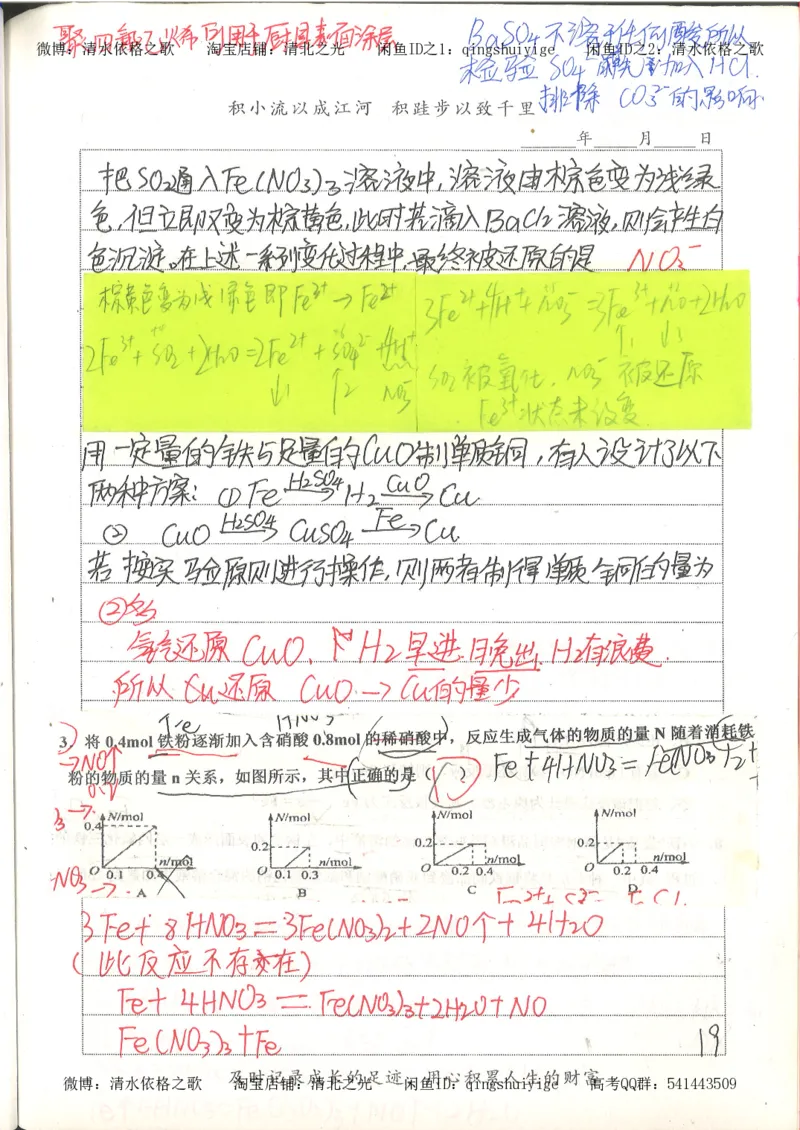 聚四氟乙烯可用于厨具表面涂层
BaSO4不溶于任何酸所以
检验SO4²⁻需先加入HCl
排除CO3²⁻的影响
微博：清水依格之歌 淘宝店铺：清北之光 闲鱼ID之1：qingshuiyige 闲鱼ID之2：清水依格之歌
积小流以成江河 积跬步以致千里
年 月 日
把SO2通入Fe(NO3)3溶液中，溶液由棕色变为浅绿
色，但立即又变为棕黄色，此时若滴入BaCl2溶液，则会产生白
色沉淀。在上述一系列变化过程中，最终被还原的是 NO3⁻
棕黄色变为浅绿色即Fe³⁺→Fe²⁺
2Fe³⁺+SO2+2H2O=2Fe²⁺+SO4²⁻+4H⁺
↓1 ↑2 NO3⁻
3Fe²⁺+4H⁺+NO3⁻=3Fe³⁺+NO+2H2O
↑1 ↓3
SO2被氧化，NO3⁻被还原
Fe³⁺状态未改变
用一定量的铁与足量的CuO制单质铜，有人设计了以下
两种方案：① Fe —H2SO4→ H2 —CuO→ Cu
② CuO —H2SO4→ CuSO4 —Fe→ Cu
若按实验原则进行操作，则两者制得单质铜的量为
②多
氢气还原CuO，H2早进晚出，H2有浪费
所以 还原CuO→Cu的量少
Fe HNO3
3 将 0.4mol 铁粉逐渐加入含硝酸 0.8mol 的稀硝酸中，反应生成气体的物质的量 N 随着消耗铁
→NO↑
粉的物质的量 n 关系，如图所示，其中正确的是（ ） D Fe+4HNO3=Fe(NO3)2+
0.2
N/mol N/mol N/mol N/mol
0.4 0.2 0.2 0.2
n/mol n/mol n/mol n/mol
O 0.1 0.4 O 0.1 0.3 O 0.2 0.4 O 0.2 0.4
NO3→
A B C D
3Fe+8HNO3=3Fe(NO3)2+2NO↑+4H2O
（此反应不存在）
Fe+4HNO3=Fe(NO3)3+2H2O+NO
Fe(NO3)3+Fe
19
及时记录成长的足迹 用心积累人生的财富
微博：清水依格之歌 淘宝店铺：清北之光 闲鱼ID：qingshuiyige 高考QQ群：541443509